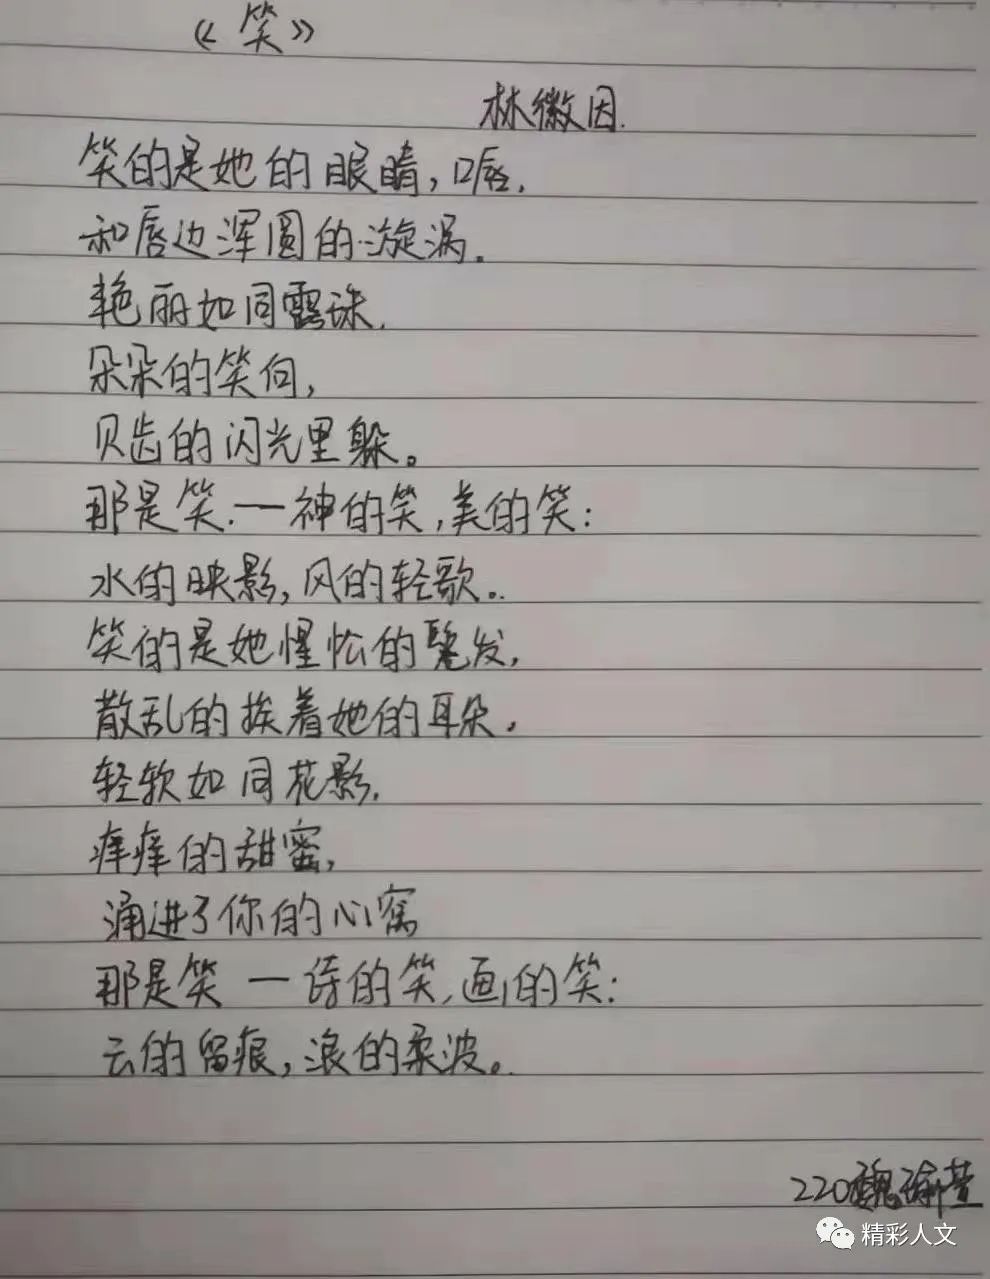 《笑》
林徽因.
笑的是她的眼睛,口唇,
和唇边浑圆的漩涡。
艳丽如同露珠,
朵朵的笑向,
贝齿的闪光里躲。
那是笑.一神的笑,美的笑:
水的映影,风的轻歌。
笑的是她惺忪的鬈发,
散乱的挨着她的耳朵,
轻软如同花影,
痒痒的甜蜜,
涌进了你的心窝
那是笑 一诗的笑,画的笑:
云的留痕,浪的柔波。
220魏瑜萱
精彩人文